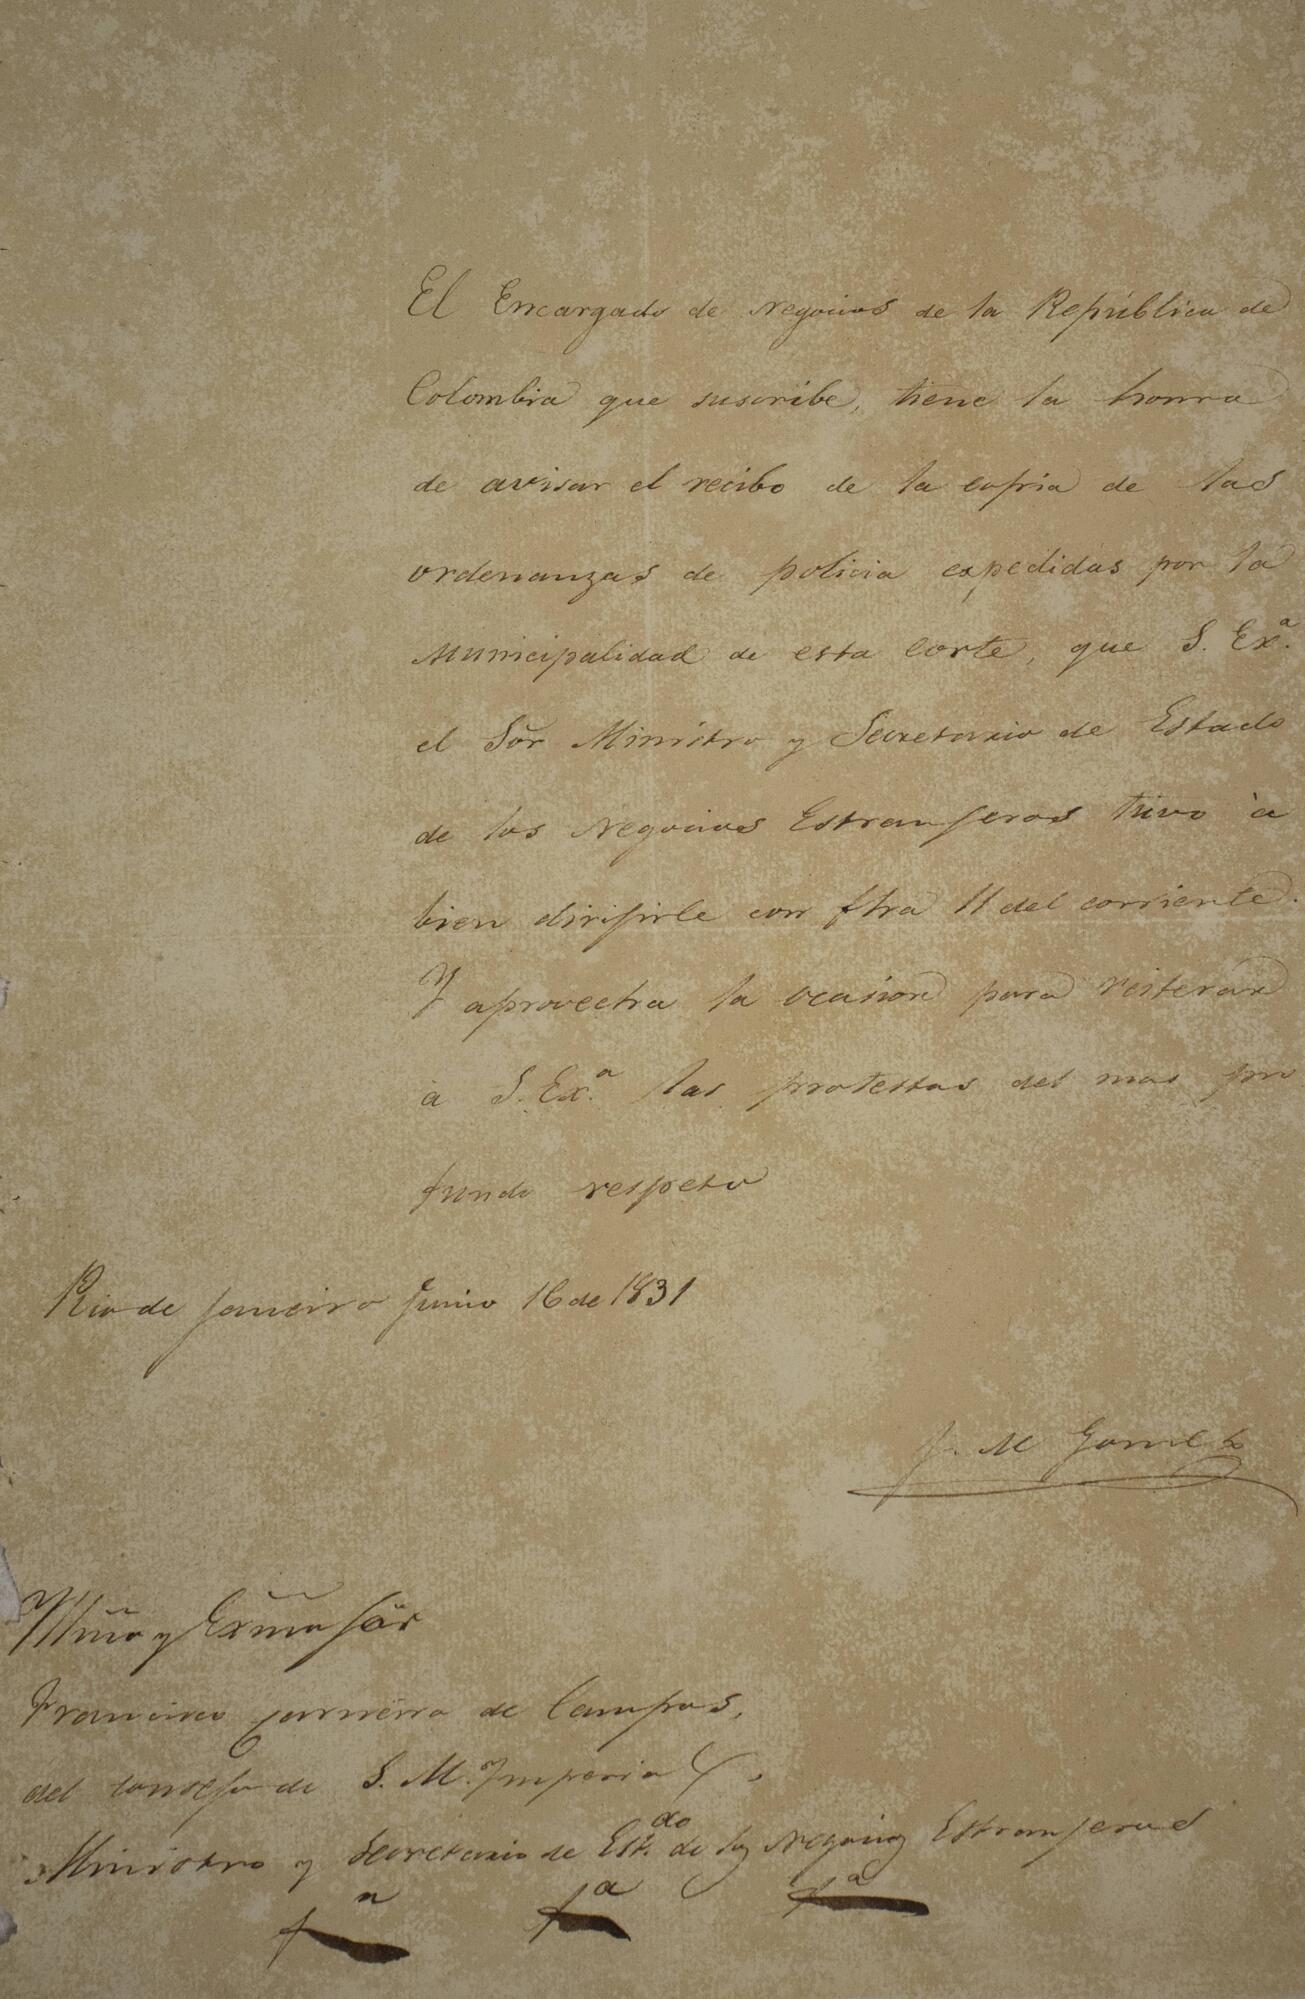 El Encargado de negocios de la República de
Colombia que suscribe, tiene la honra
de avisar el recibo de la copia de las
ordenanzas de policia expedidas por la
Municipalidad de esta Corte, que S. Exª.
el Sõr Ministro y Secretario de Estado
de los Negocios Estranjeros tuvo à
bien dirijirle con fha 11 del corriente.
Y aprovecha la ocasion para reiterar
a S. Exª. las protestas del mas pro
fundo respeto
Rio de Janeiro Junio 16 de 1831
J. M Gomez
Yllmõ y Exmõ Sõr
Francisco Carneiro de Campos,
del Consejo de S. M. Ymperial,
Ministro y Secretario de Estdo. de los Negocios Estranjeros